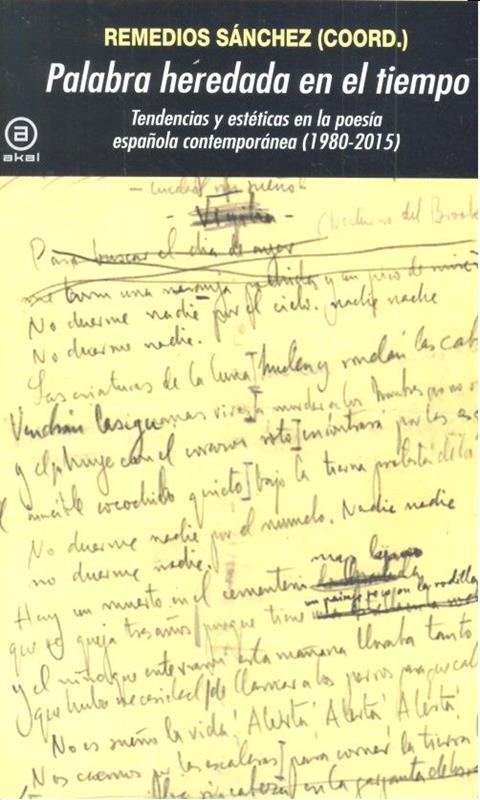 REMEDIOS SÁNCHEZ (COORD.)
Palabra heredada en el tiempo
Tendencias y estéticas en la poesía
española contemporánea (1980-2015)
a
akal
- ciudad sin sueño -
- Vigilia -
(Nocturno del Brook
Para buscar el dia de ayer
una naranja podrida y un
No duerme nadie por el cielo. nadie nadie
No duerme nadie.
Las criaturas de la luna] huelen y rondan las cab
Vendrán las iguanas vivas a morder a los hombres que no
y el que huye con el corazon roto] encontrará por las es
increible cocodrilo quieto] bajo la tierna protesta de
No duerme nadie por el mundo. Nadie nadie
no duerme nadie.
mas lejano
Hay un muerto en el cementerio
un paisaje seco en la rodilla
que se queja tres años] porque tiene
y el niño que enterraron esta mañana lloraba tanto
que hubo necesidad] de llamar a los perros para que cal
No es sueño la vida! Alerta! Alerta! Alerta!
Nos caemos por las escaleras] para comer la tierra